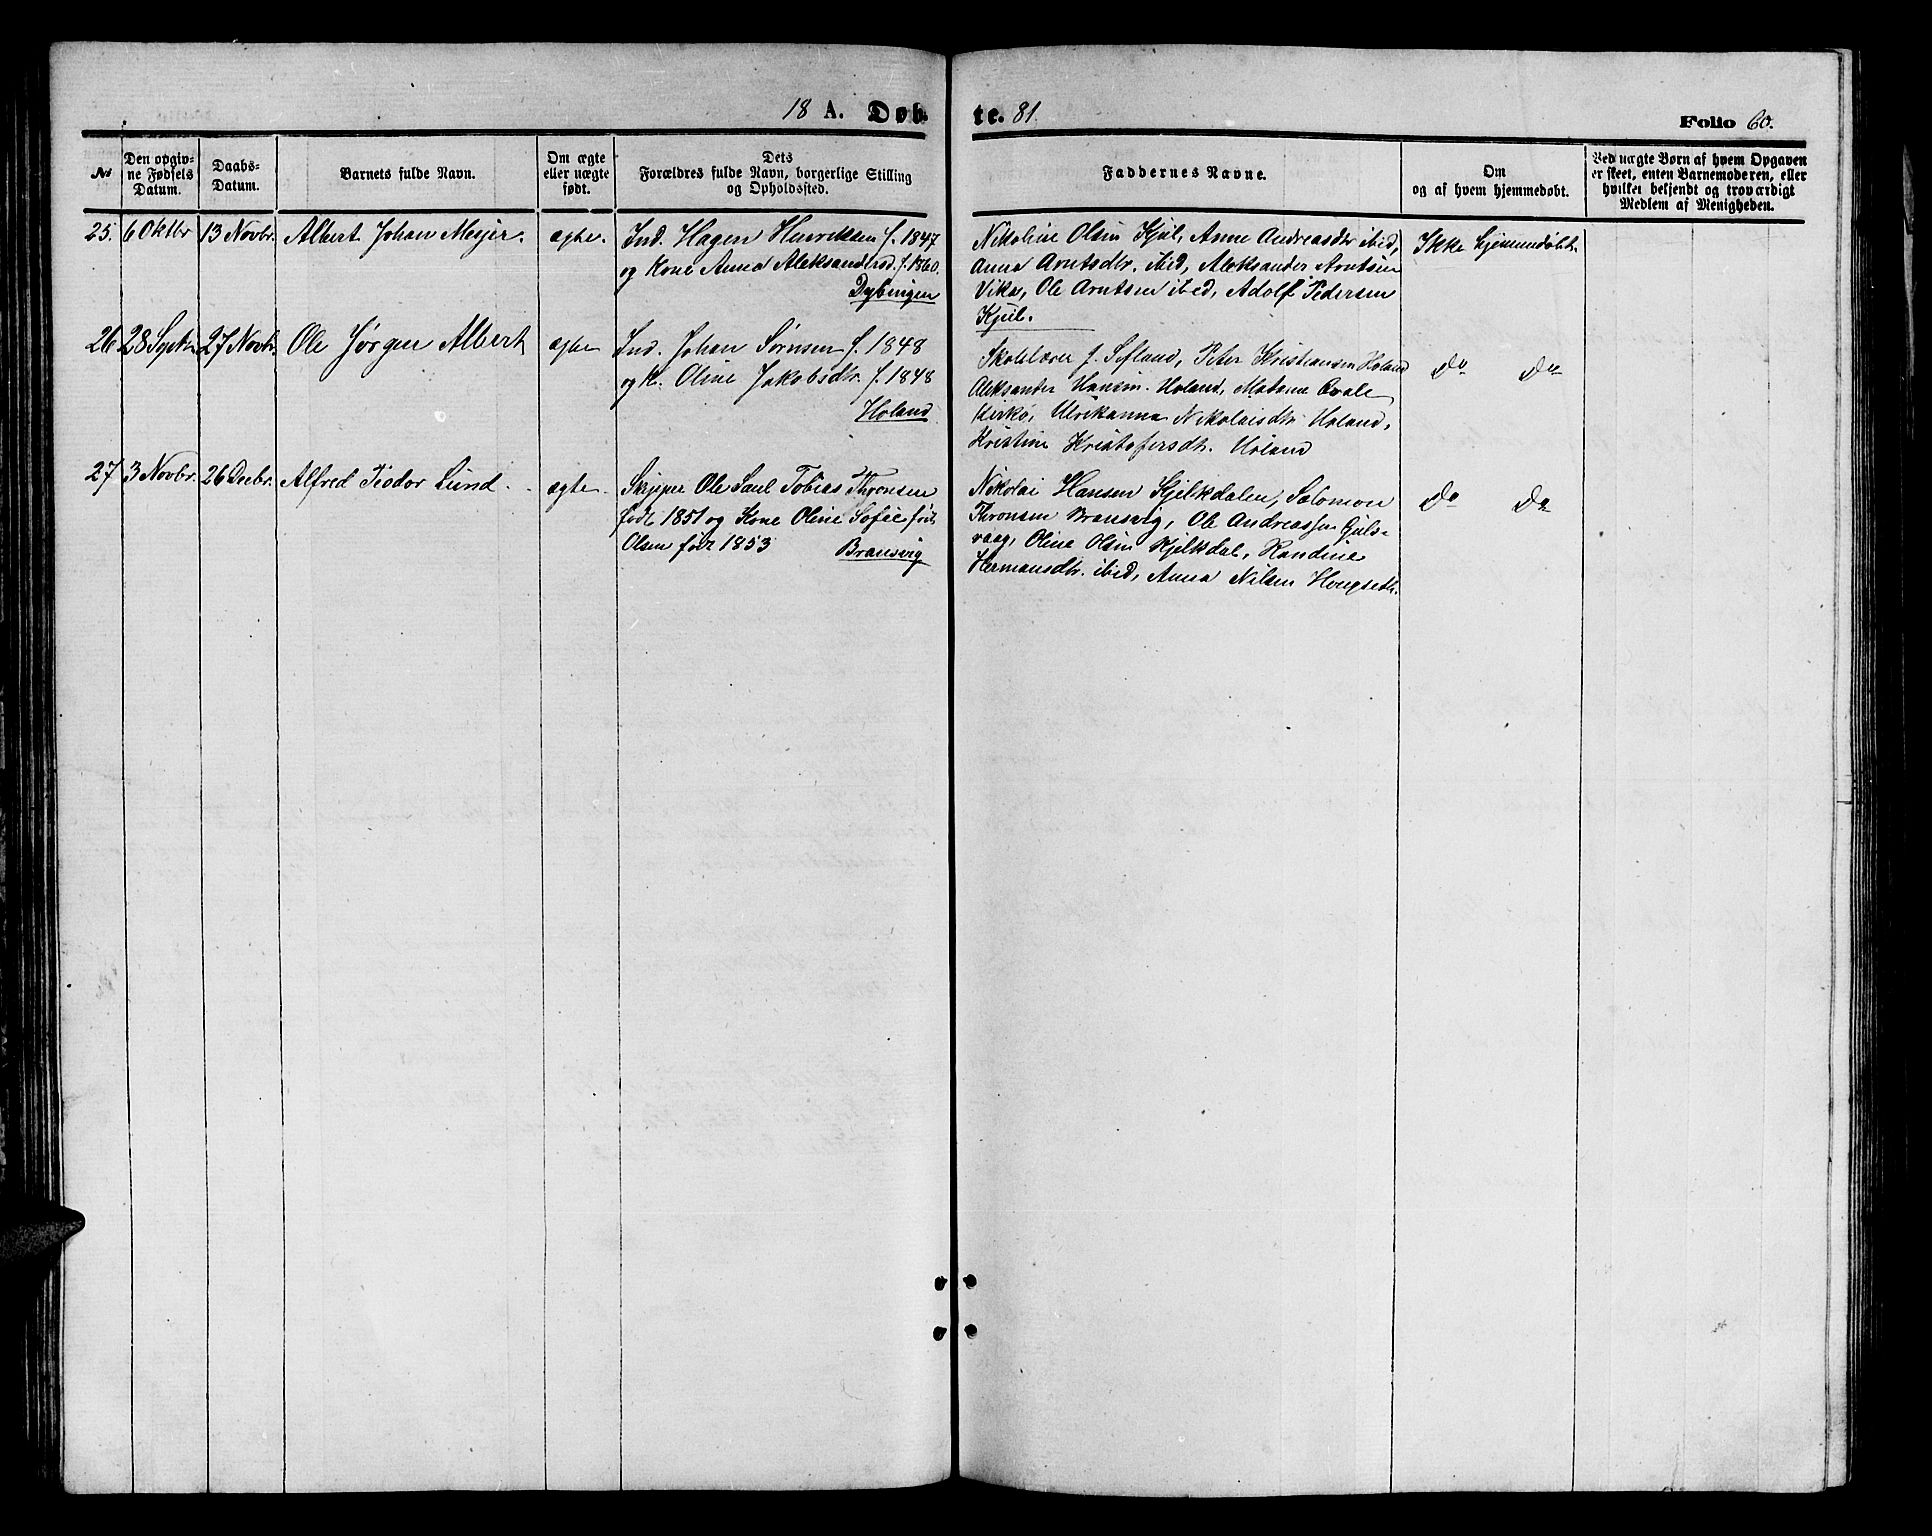 18 A. Døb-
te. 81.
Folio 60.
№
Den opgiv-
ne Fødsels
Datum.
Daabs-
Datum.
Barnets fulde Navn.
Om ægte
eller uægte
født.
Dets
Forældres fulde Navn, borgerlige Stilling
og Opholdssted.
Faddernes Navne.
Om
og af hvem hjemmedøbt.
Ved uægte Børn af hvem Opgaven
er skeet, enten Barnemoderen, eller
hvilket bekjendt og troværdigt
Medlem af Menigheden.
25. 6 Oktbr 13 Novbr. Albert Johan Mejer. ægte.
Ind. Hagen Henriksen f. 1847
og Kone Anna Aleksandersd. f. 1860.
Dybingen
Nikoline Olsen Kjul, Anne Andreasdr ibid,
Anna Arntsdtr. ibid, Aleksander Arntsen
Vika, Ole Arntsen ibid, Adolf Pedersen
Kjul.
Ikke hjemmedøbt.
26 28 Septr. 27 Novbr. Ole Jørgen Albert ægte
Ind. Johan Sørnsen f. 1848
og K. Oline Jakobsdtr. f. 1848
Holand
Skolelærer J. Sefland, Peter Kristiansen Holand
Aleksander Hansen Holand, Matena
Ulrikanna Nikolaisdtr Holand,
Kristine Kristofersdtr. Holand
do do
27 3 Novbr. 26 Decbr. Alfred Teodor Lund. ægte.
Skipper Ole Saul Tobias Thronsen
født 1851 og Kone Oline Sofie født
Olsen født 1853 Bransvig
Nikolai Hansen Kjelkdalen, Salomon
Thronsen Bransvig, Ole Andreassen Guls-
vaag, Oline Olsen Kjelkdal, Randine
Hermansdtr. ibid, Anna Nilsen Hougseth.
do do